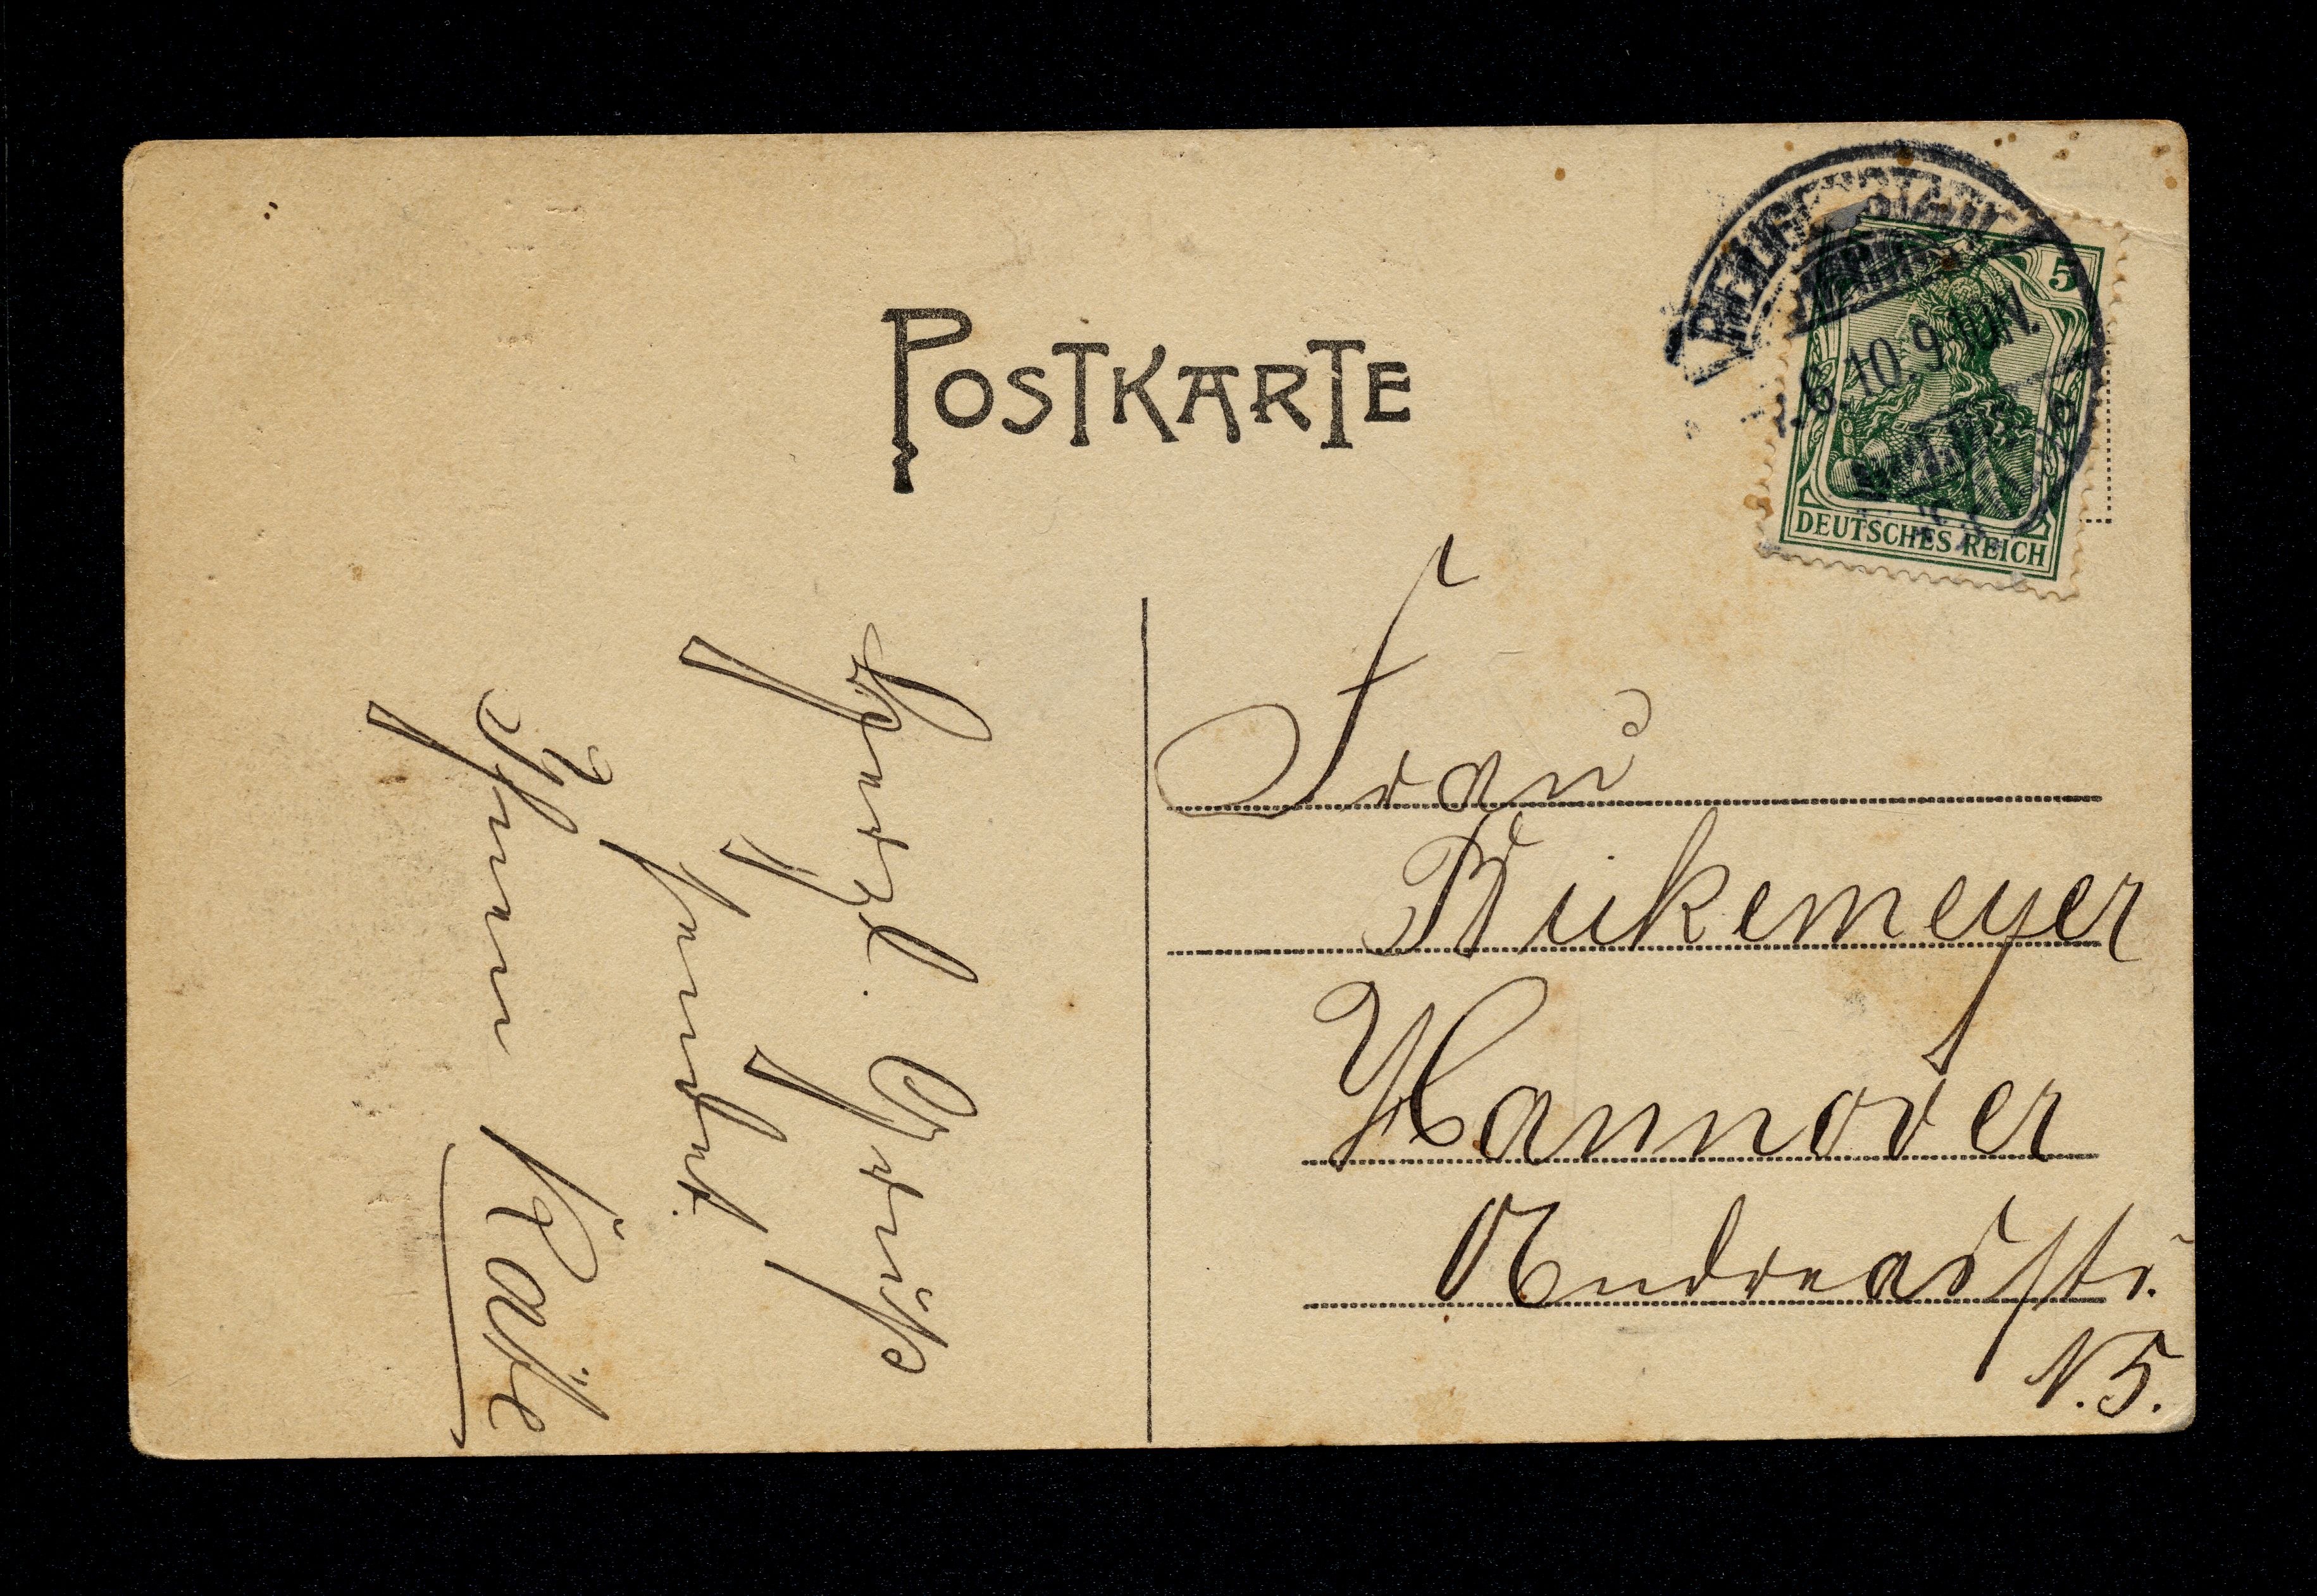 POSTKARTE
5
DEUTSCHES REICH
6.10.9-10N.
Herzl. Grüße
sendet
Ihnen Käthe
Frau
Hannover
Andreasstr.
N. 5.